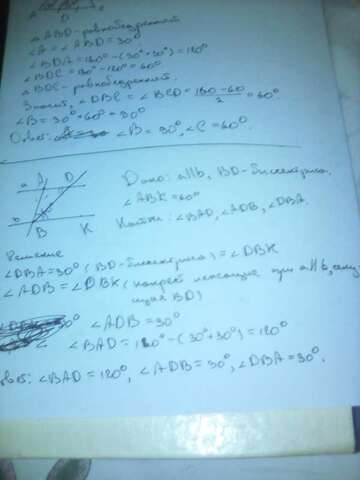 A D C
△ABD - равнобедренный
∠A = ∠ABD = 30°
∠BDA = 180° - (30° + 30°) = 120°
∠BDC = 180° - 120° = 60°
△BDC - равнобедренный.
Значит, ∠DBC = ∠BCD = (180 - 60)/2 = 60°.
∠B = 30° + 60° = 90°
Ответ: ∠B = 90°, ∠C = 60°.
a A D
b B K
Дано: a||b, BD - биссектриса,
∠ABK = 60°
Найти: ∠BAD, ∠ADB, ∠DBA.
Решение
∠DBA = 30° (BD - биссектриса) = ∠DBK
∠ADB = ∠DBK (накрест лежащие при a||b, секу
щая BD)
∠ADB = 30°
∠BAD = 180° - (30° + 30°) = 120°
Ответ: ∠BAD = 120°, ∠ADB = 30°, ∠DBA = 30°.